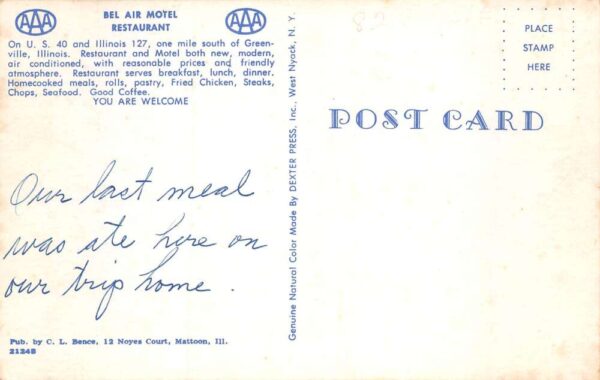 AAA
BEL AIR MOTEL
RESTAURANT
AAA
On U. S. 40 and Illinois 127, one mile south of Green-
ville, Illinois. Restaurant and Motel both new, modern,
air conditioned, with reasonable prices and friendly
atmosphere. Restaurant serves breakfast, lunch, dinner.
Homecooked meals, rolls, pastry, Fried Chicken, Steaks,
Chops, Seafood. Good Coffee.
YOU ARE WELCOME
Our last meal
was ate here on
our trip home.
Pub. by C. L. Bence, 12 Noyes Court, Mattoon, Ill.
21248
Genuine Natural Color Made By DEXTER PRESS, Inc., West Nyack, N. Y.
PLACE
STAMP
HERE
POST CARD